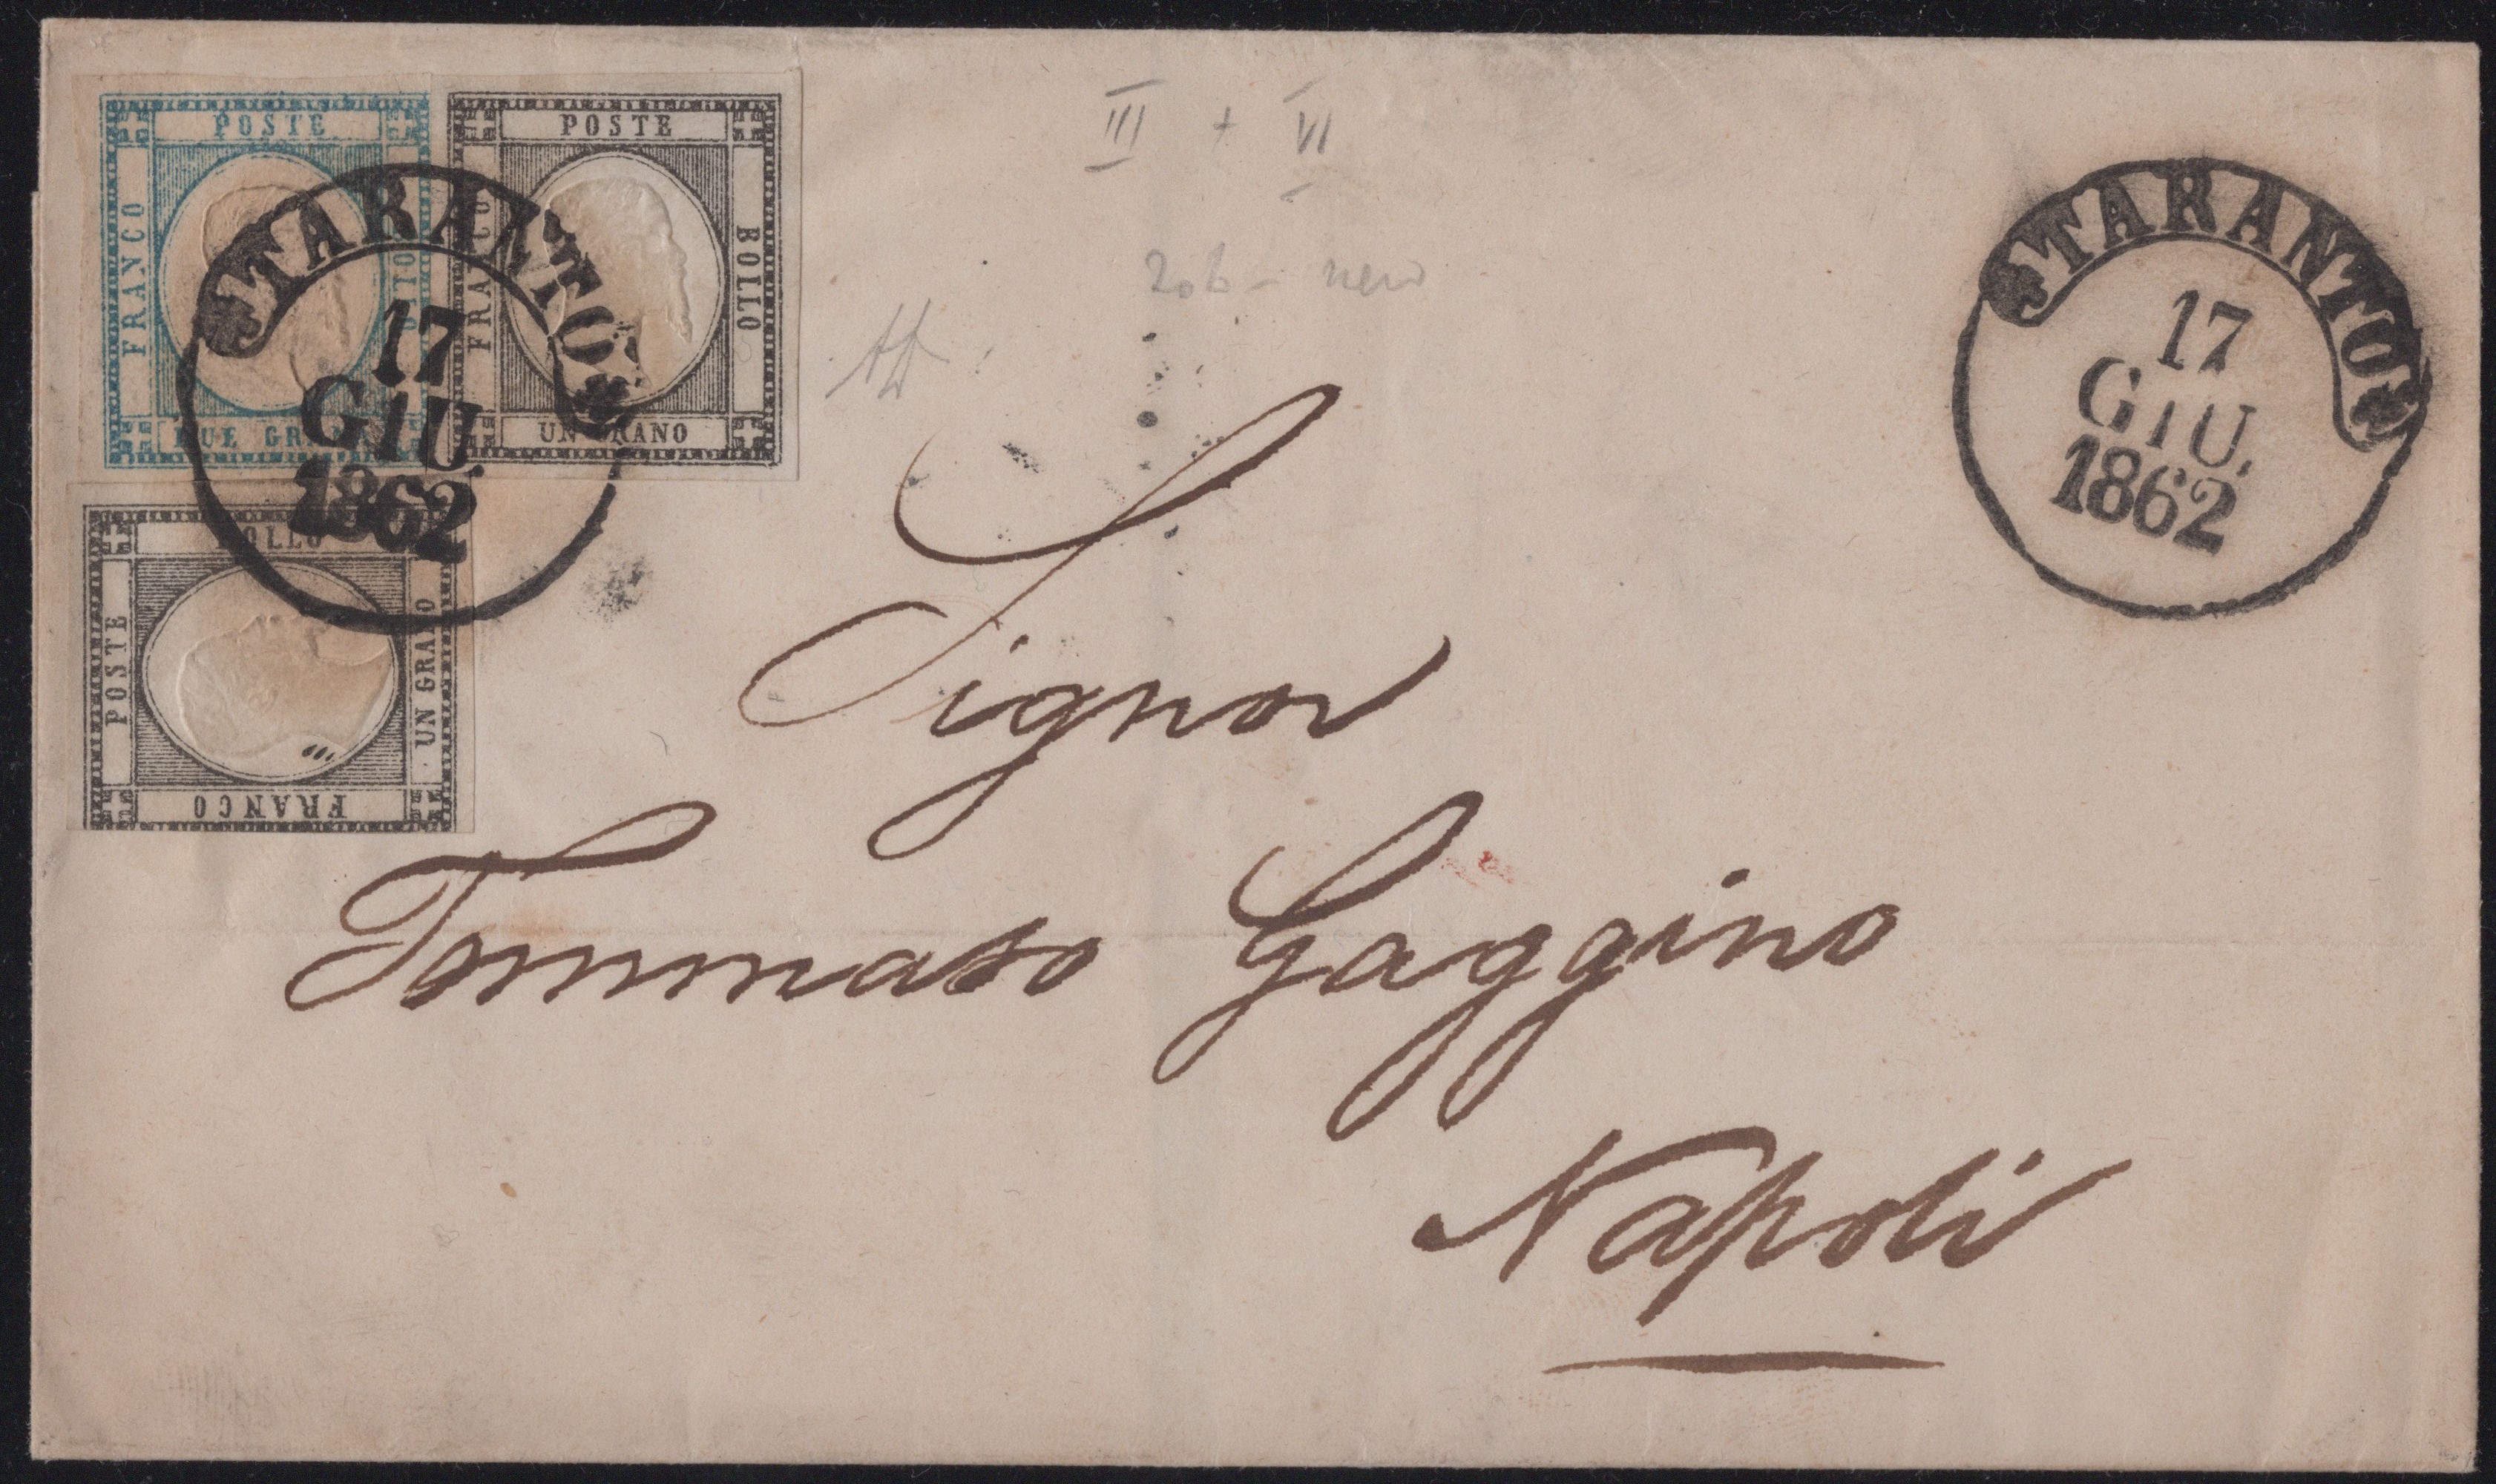 POSTE
FRANCO
BOLLO
DUE GRANA
POSTE
FRANCO
BOLLO
UN GRANO
BOLLO
POSTE
UN GRANO
FRANCO
TARANTO
17
GIU.
1862
III + VI
TARANTO
17
GIU.
1862
Signor
Tommaso Gaggino
Napoli